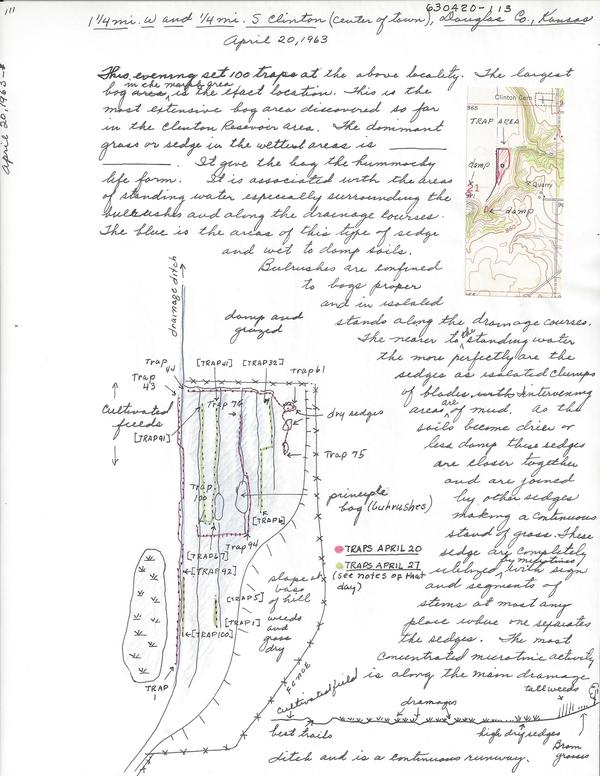 111
630420-113
1 1/4 mi. W and 1/4 mi. S Clinton (center of town), Douglas Co., Kansas
April 20, 1963
April 20, 1963
This evening set 100 traps at the above locality. The largest
in the marsh area
bog area, is the exact location. This is the
most extensive bog area discovered so far
in the Clinton Resevoir area. The dominant
grass or sedge in the wetted areas is ______
______. It give the bog the hummocky
life form. It is associated with the areas
of standing water especially surrounding the
bullrushes and along the drainage courses.
The blue is the areas of this type of sedge
and wet to damp soils.
Bulrushes are confined
to bogs proper
and in isolated
stands along the drainage courses.
The nearer to the standing water
the more perfectly are the
sedges as isolated clumps
of blades with intervening
areas of mud. As the
soils are become drier or
less damp these sedges
are closer together
and are joined
by other sedges
making a continuous
stand of grass. These
sedge are completely
utilized by microtines with sign
and segments of
stems at most any
place where one separates
the sedges. The most
concentrated microtine activity
is along the main drainage
ditch and is a continuous runway.
Clinton Cem
865
TRAP AREA
damp
Quarry
damp
860
drainage ditch
damp and
grazed
Trap
44
Trap
43
[TRAP 41]
[TRAP 32]
Trap 61
Cultivated
fields
[TRAP 91]
Trap 76
dry sedges
Trap 75
Trap
100
principle
bog (bulrushes)
[TRAP 6]
Trap 94
[TRAP 67]
[TRAP 92]
[TRAP 5]
[TRAP 1]
[TRAP 100]
TRAP
1
TRAPS APRIL 20
TRAPS APRIL 27
(see notes of that
day)
slope at
base
of hill
weeds
and
grass
dry
FENCE
cultivated field
best trails
drainages
high dry sedges
tall weeds
Brom
grasses